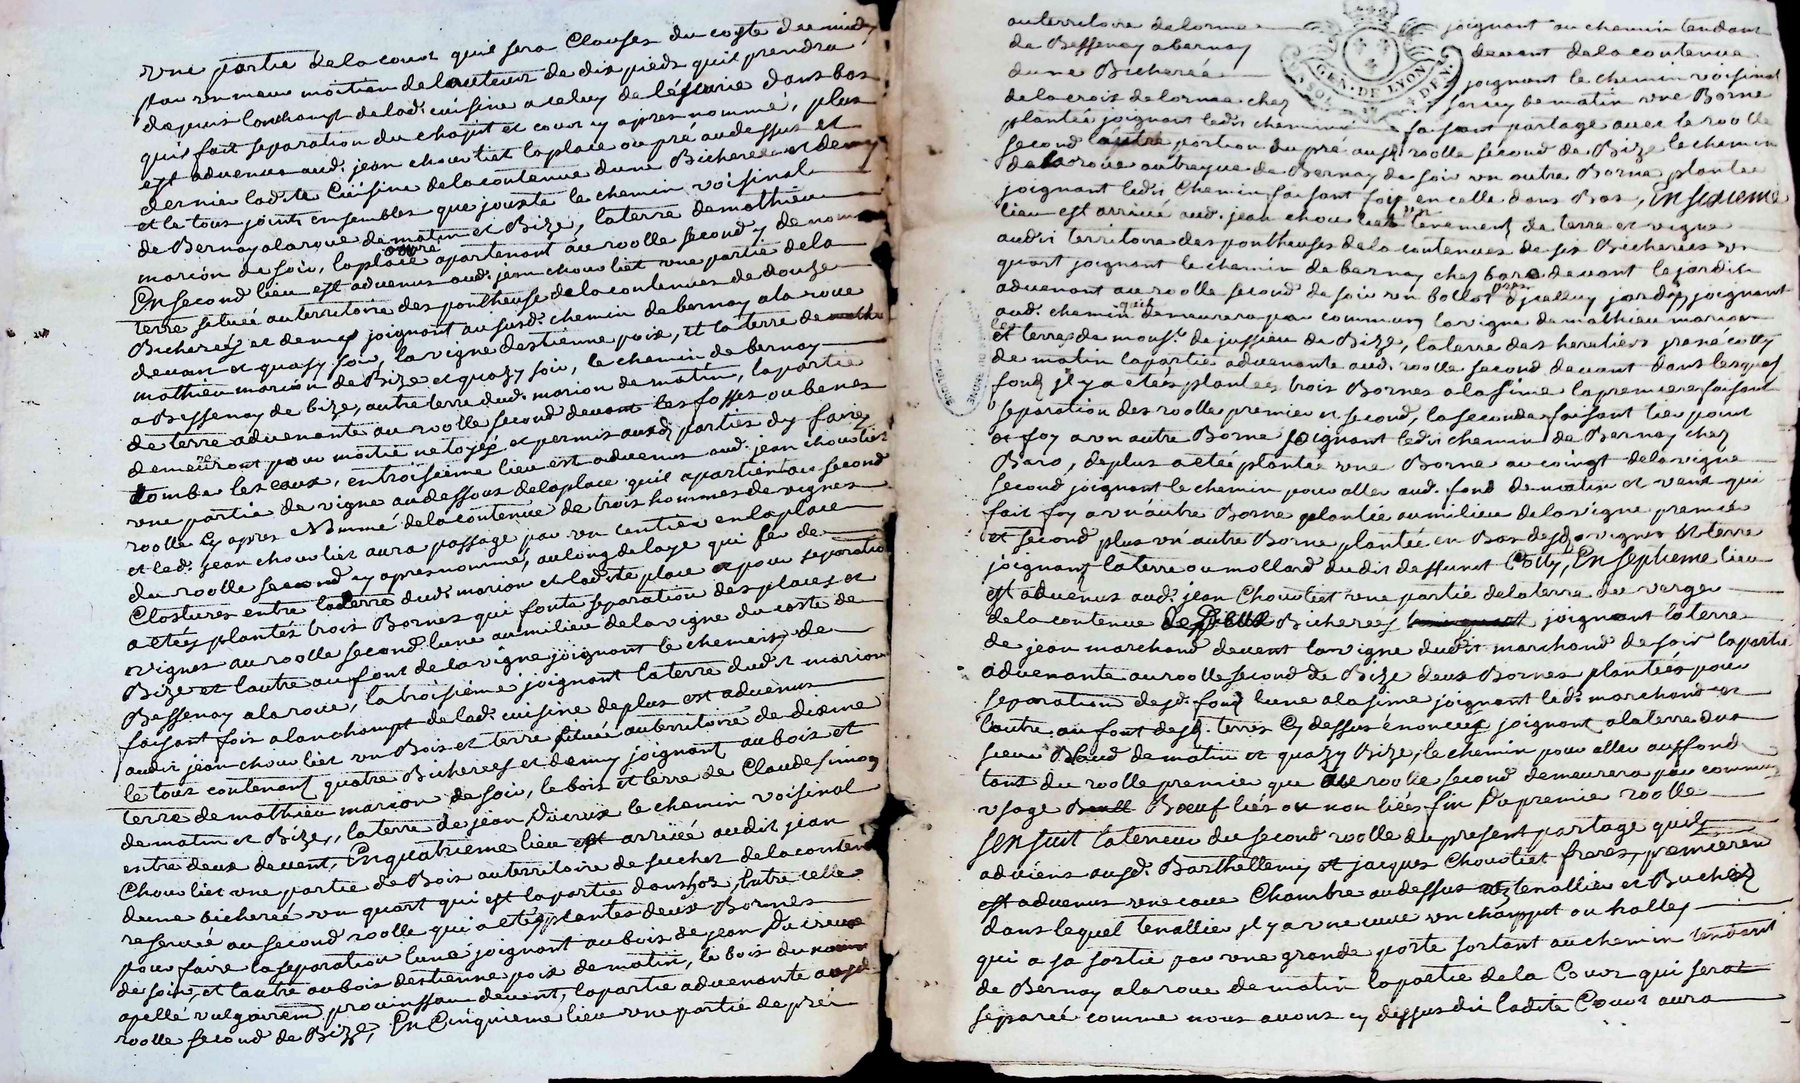 une partie de la cour quil sera Clauses du coste de midy
par un mur moitien de lauteur de dix pieds quil prendra
depuis lonchamp de lad. cuisine a celuy de lescurie dans bas
quil fait separation du chapit et cour cy apres nommé, plus
est advenus aud. jean chouvliet la place ou pré au dessus et
dernier ladite Cuisine de la contenue dune Bicheree et demy
et le tous joints ensembles que jouxte le chemin voisinal
de Bernay alaroue de matin et Bize, la terre de mathieu
marion de soir, la place apartenant au roolle second y denommé
En second lieu est advenus aud. jean chouvliet une partie de la
terre situéé au territoire des pontheuse de la contenues de douze
Bicherees et demy joignant au susd. chemin de bernay a la roue
devan et quasy soir, la vigne destienne poix, et la terre de
mathieu marion de Bize et quazy soir, le chemin de bernay
a Bessenay de bize, autre terre dud. marion de matin, la partie
de terre advenante au roolle second devant les fosses ou benes
demeuront pour moitié netoyés et permis ausd. parties dy faire
tomber les eaux, en troisieme lieu est advenus aud. jean chouvliet
une partie de vigne au dessous de la place quil apartient au second
roolle cy apres Nommé de la contenue de trois hommes de vignes
et led. jean chouvliet aura passage par un centier en la place
du roolle second cy apres nommé, au long de laye qui fera de
Clostures entre la terre dud. marion et ladite place et pour separation
a etées plantés trois Bornes qui font la separation des places et
vignes au roolle second lune au milieu de la vigne du coste de
Bize et lautre au font de la vigne joignant le chemein de
Bessenay a la roue, la troisieme joignant la terre dudit marion
faisant fois a lanchampt de lad. cuisine de plus est advenus
audit jean chouvliet un Bois et terre situéé au territoire de dieme
le tout contenant quatre Bicherees et demy joignant au bois et
terre de mathieu marion de soir, le bois et terre de Claude simon
de matin et Bize, la terre de jean Ducreux le chemin voisinal
entre deux devent, En quatrieme lieu est arrivéé audit jean
Chouvliet une partie de Bois au territoire de suchet de la contenu
dune bicheréé un quart qui est la partie dans bas, lautre celle
reservéé au second roolle qui a etés plantes deux Bornes
pour faire la separation lune joignant au bois de jean Ducreux
de soir, et lautre au bois destienne poix de matin, le bois du
apellé vulgairem. devent, la partie advenante au
roolle second de Bize, En Cinquieme lieu une partie de pré
au territoire de lorme joignant au chemin tendant
de Bessenay a bernay devent de la contenue
dune Bicheréé joignant le chemin voisinal
de la crois de lormea chez de matin une Borne
plantée joignant ledit chemin faisant partage avec le roolle
second lautre portion du pré ausd. roolle second de Bize le chemin
de la roue de Bernay de soir un autre Borne plantée
joignant ledit Chemin faisant foix en celle dans Bas, En sixieme
lieu est arrivéé aud. jean chouvliet un tenement de terre et vigne
audit territoire des pontheuses de la contenues de six Bicherees un
quart joignant le chemin de bernay chez baro devent le jardin
advenant au roolle second de soir un bollot dicelluy jardin joignant
aud. chemin quil demeurera par commun la vigne de mathieu marion
et terres de mons. de jussieu de Bize, la terre des heretiers
de matin la partie advenante aud. roolle second devant dans lesquels
fonds jl y a etées plantées trois Bornes a la sime la premiere faisant
separation des roolles premier et second, la seconde faisant tier point
et foy a un autre Borne joignant ledit chemin de Bernay chez
Baro, de plus a etéé plantéé une Borne au coingt de la vigne
second joignant le chemin pour aller aud. fond de matin et vent qui
fait foy a un autre Borne plantéé au milieu de la vigne premie
et second plus un autre Borne plantéé en Bas desd. vignes et terre
joignant la terre ou mollard dudit deffunct Colly, En septieme lieu
est advenus aud. jean Chouvliet une partie de la terre du verger
de la contenue Bicherees joignant la terre
de jean marchand devent la vigne dudit marchand de soir la partie
advenante au roolle second de Bize deux Bornes plantéés pour
separation desd. fonds lune a la sime joignant led. marchand et
lautre au font desd. terres Cy dessus énoncéés joignant a la terre du
sieur de matin et quazy Bize, le chemin pour aller au fond
tant du roolle premie que au roolle second demeurera par commun
usage Bœuf liés ou non liéés, fin Du premie roolle
SEnsuit la teneur du second roolle du present partage quil
adviens ausd. Barthellemy et jacques Chouvliet freres, premieren
est advenus une cave Chambre au dessus tenallier et Bucher
dans lequel tenallier jl y a une cuve un chappit ou halles
qui a sa sortie par une grande porte sortant au chemin tendant
de Bernay a la roue de matin la partie de la Cour qui sera
separéé comme nous avons cy dessus dit ladite Cour aura
GEN. DE LYON
SOL
4 DEN